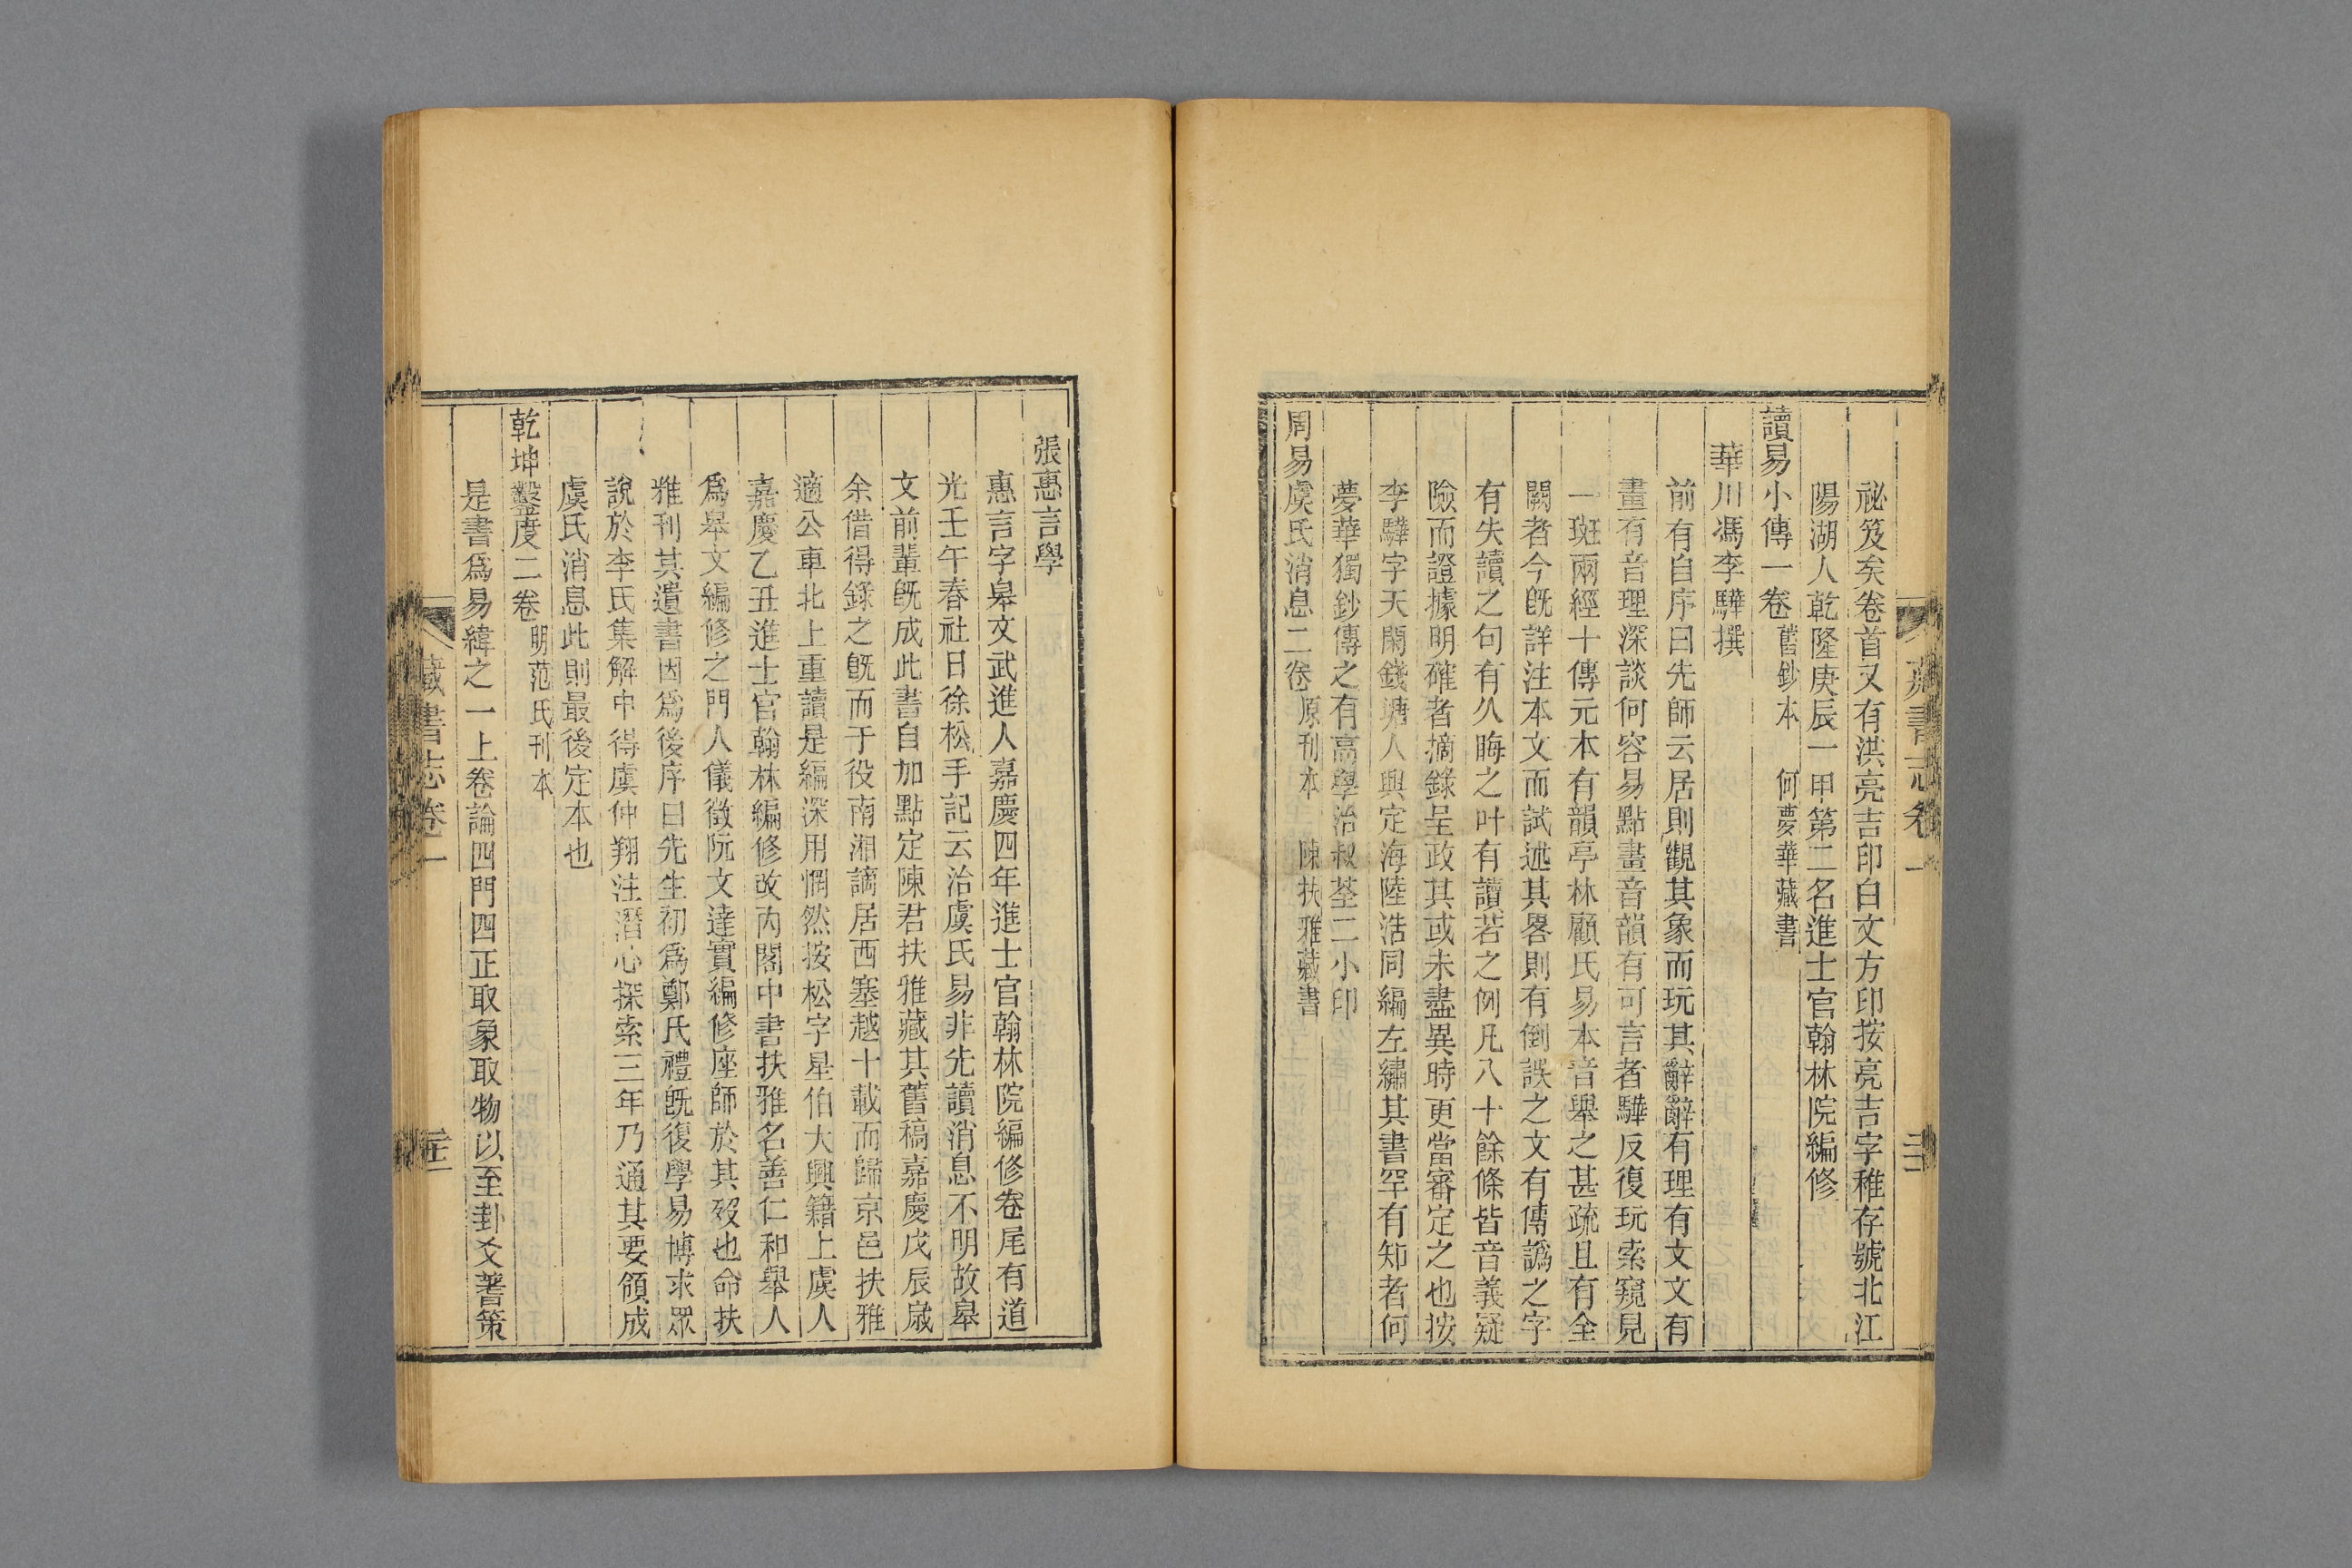 祕笈矣卷首又有洪亮吉印白文方印按亮吉字稚存號北江
陽湖人乾隆庚辰一甲第二名進士官翰林院編修
讀易小傳一卷 舊鈔本 何夢華藏書
華川馮李驊撰
前有自序曰先師云居則觀其象而玩其辭辭有理有文文有
畫有音理深談何容易點畫音韻有可言者驊反復玩索窺見
一斑兩經十傳元本有韻亭林顧氏易本音舉之甚疏且有全
闕者今旣詳注本文而試述其畧則有倒誤之文有傳譌之字
有失讀之句有久晦之叶有讀若之例凡八十餘條皆音義疑
險而證據明確者摘錄呈政其或未盡異時更當審定之也按
李驊字天閑錢塘人與定海陸浩同編左繡其書罕有知者何
夢華獨鈔傳之有高學治叔荃二小印
周易虞氏消息二卷 原刊本 陳扶雅藏書
張惠言學
惠言字皋文武進人嘉慶四年進士官翰林院編修卷尾有道
光壬午春社日徐松手記云治虞氏易非先讀消息不明故皋
文前輩旣成此書自加點定陳君扶雅藏其舊稿嘉慶戊辰歲
余借得錄之旣而于役南湘謫居西塞越十載而歸京邑扶雅
適公車北上重讀是編深用惘然按松字星伯大興籍上虞人
嘉慶乙丑進士官翰林編修改內閣中書扶雅名善仁和舉人
爲皋文編修之門人儀徵阮文達實編修座師於其歿也命扶
雅刊其遺書因爲後序曰先生初爲鄭氏禮旣復學易博求眾
說於李氏集解中得虞仲翔注潛心探索三年乃通其要領成
虞氏消息此則最後定本也
乾坤鑿度二卷 明范氏刊本
是書爲易緯之一上卷論四門四正取象取物以至卦爻蓍策
藏書志卷一